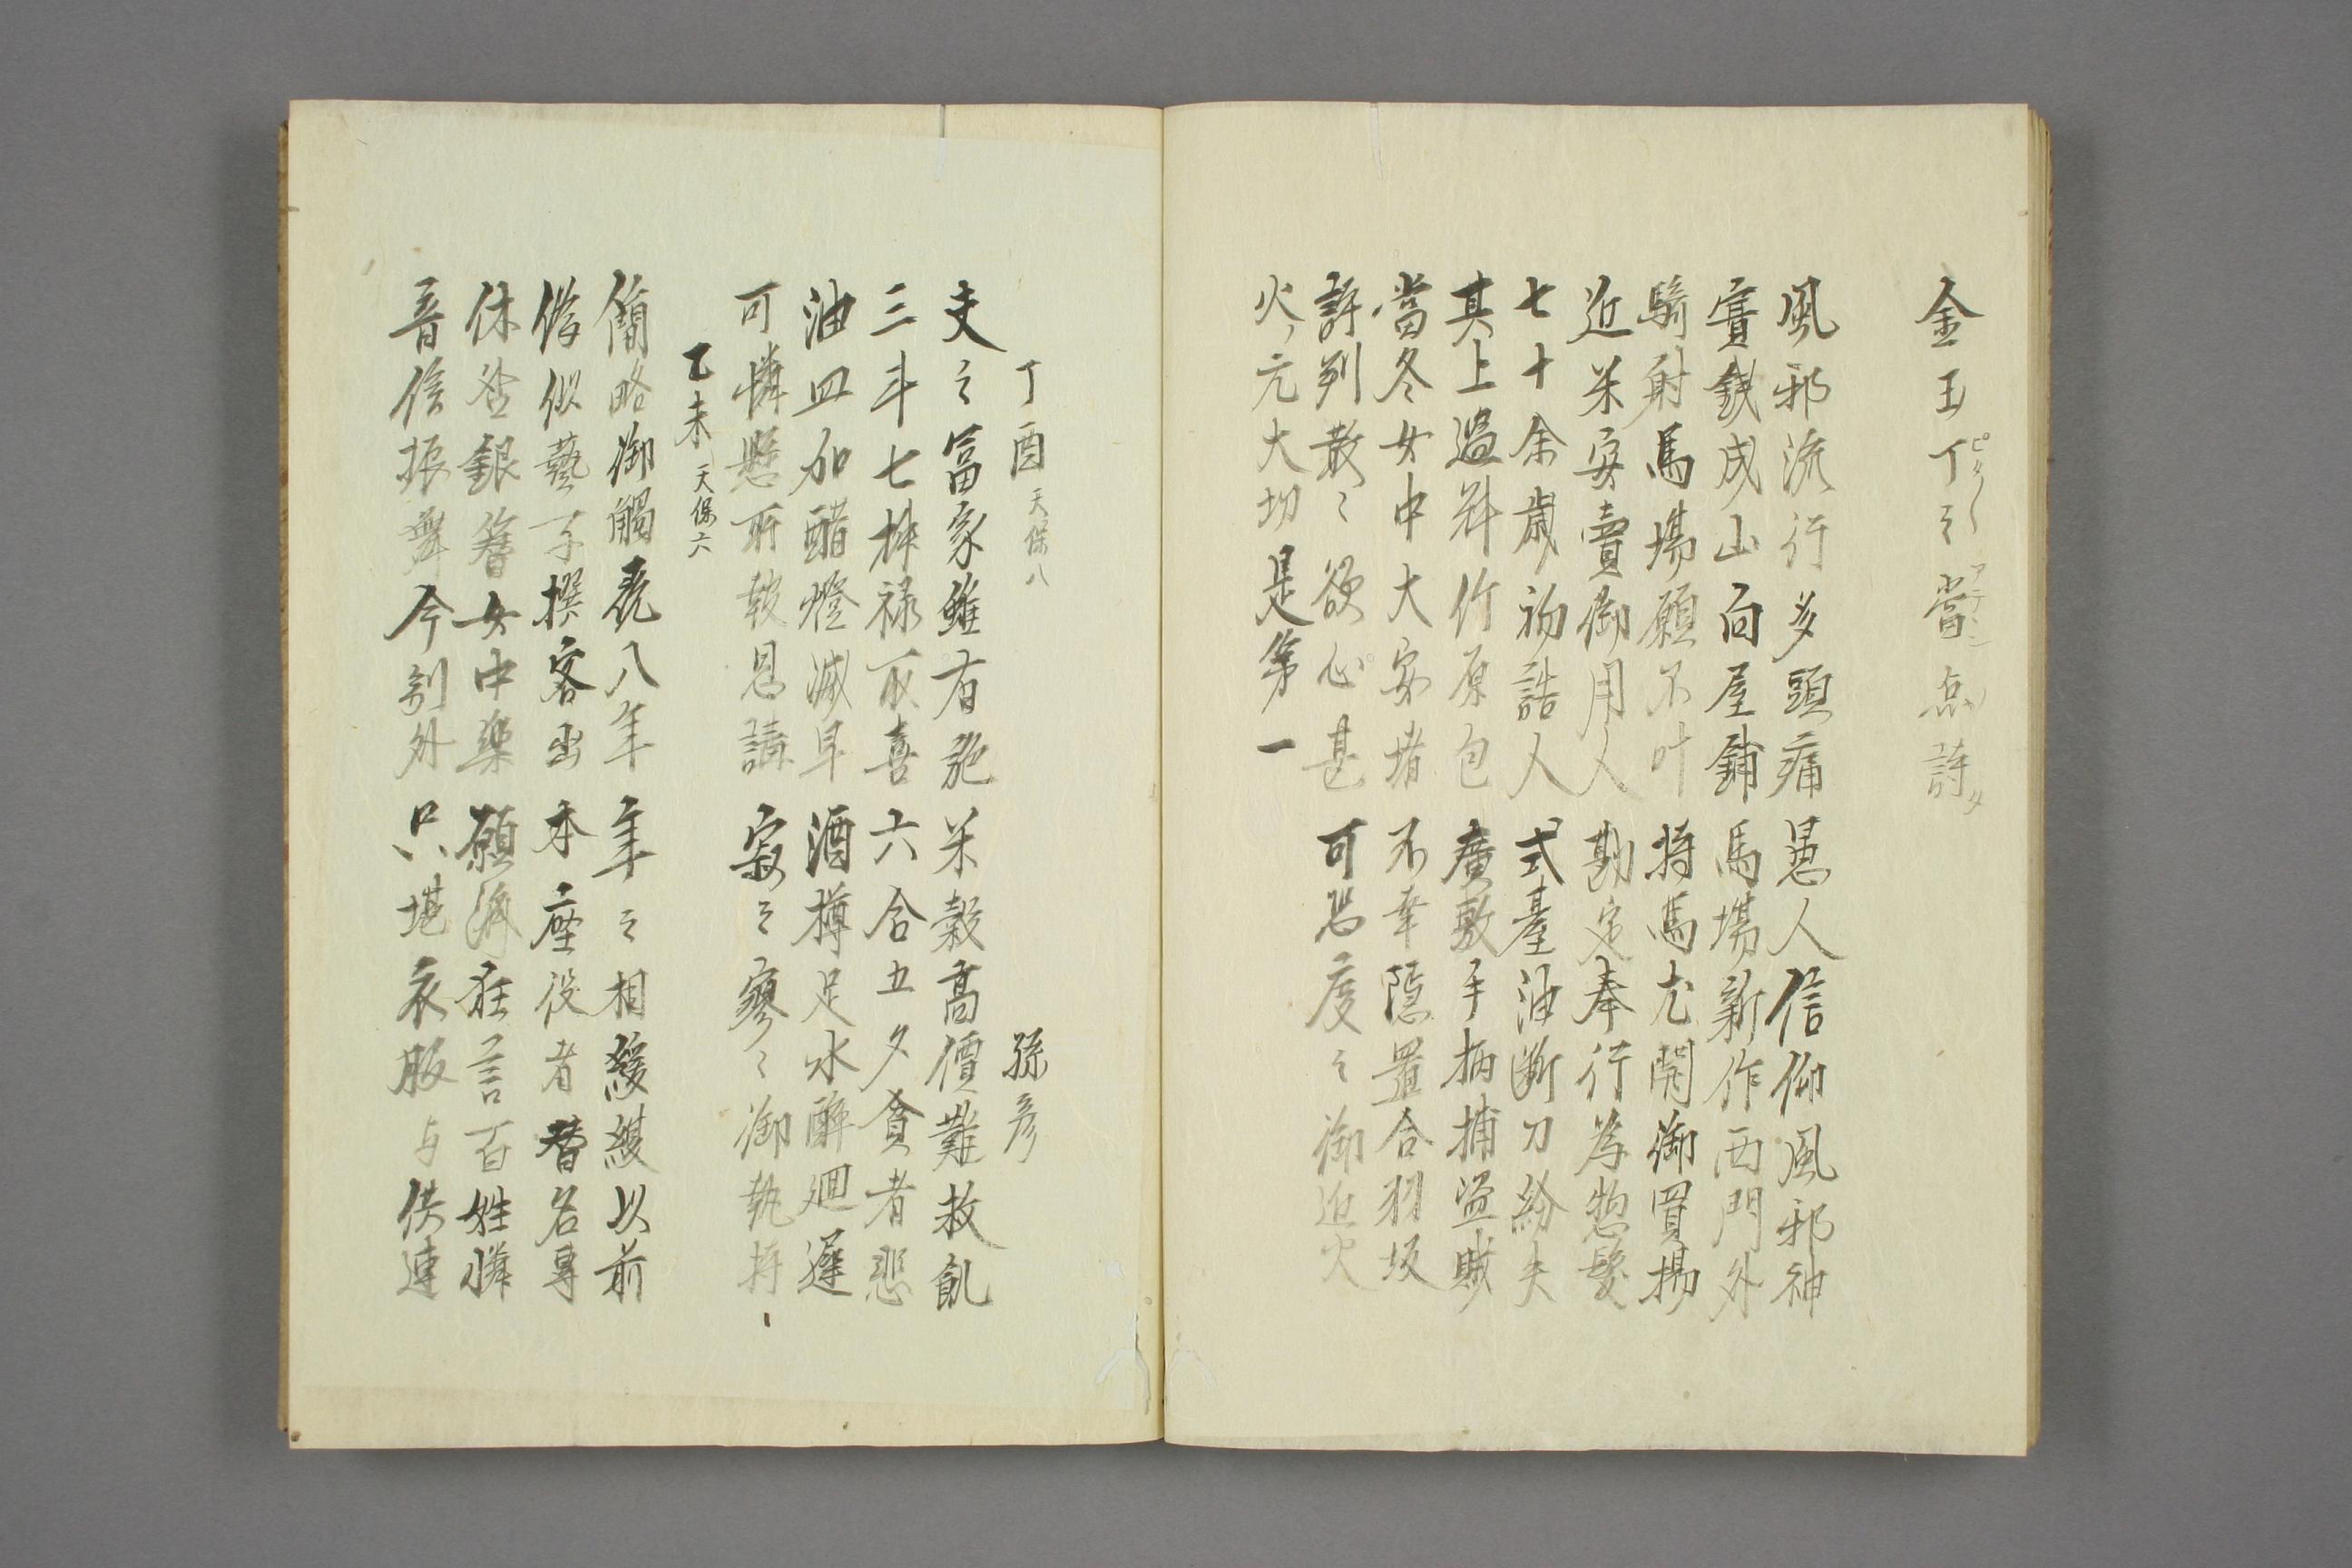 金玉丁々當点詩
風邪流行多頭痛 愚人信仰風邪神
賽銭成山向屋鋪 馬場新作西門外
騎射馬場願不叶 持馬尤開御買揚
近米安賣御用人 勘定奉行為惣髪
七十余歳初誥人 式臺油断刀紛失
其上過料竹原包 廣敷手柄捕盗賊
當冬女中大家堵 不幸隠置合羽坂
評判散々欲心甚 可恐度々御近火
火ノ元大切是第一
丁酉 天保八
孫彦
夫々冨家雖有施 米穀高價難救飢
三斗七舛禄取喜 六合五夕貪者悲
油皿加醋燈滅早 酒樽足水酔廻遅
可憐懸所鼓見講 寂々寥々御執持
乙未 天保六
簡略御觸義八年 年々相緩緩以前
俗似藝子撰客出 本座役者替名専
休咎銀簪女中楽 願済狂言百姓憐
音信振舞今別外 只堪衣服与供連